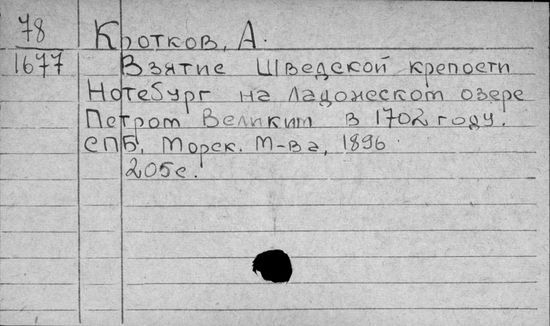 78
1677
Кротков, А.
Взятие Шведской крепости
Нотебург на Ладожском озере
Петром Великим в 1702 году.
СПБ, Морск. М-ва, 1896.
205с.